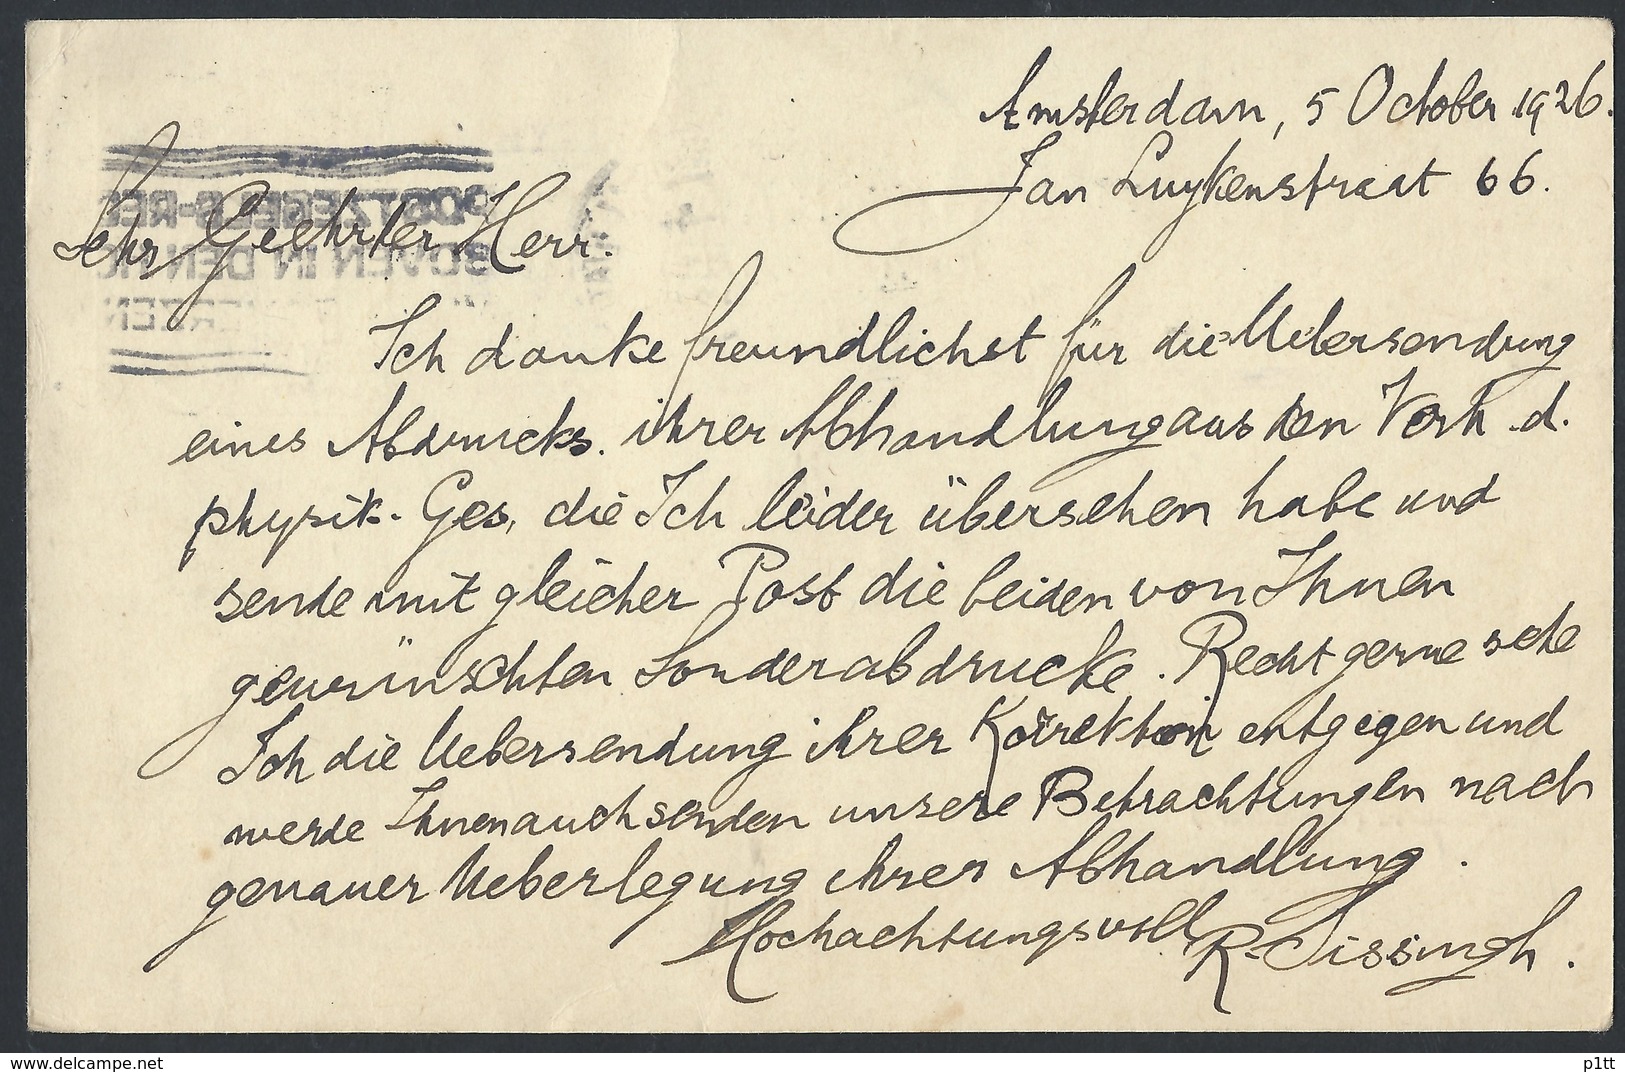 Amsterdam, 5 October 1926.
Jan Luykenstraat 66.
Sehr Geehrter Herr.
Ich danke freundlichst für die Uebersendung
eines Abdrucks. ihrer Abhandlung aus den Verh. d.
physik. Ges, die Ich leider übersehen habe und
sende mit gleicher Post die beiden von Ihnen
gewünschten Sonderabdrucke. Recht gerne sehe
Ich die Uebersendung ihrer Korrektion entgegen und
werde Ihnen auch senden unsere Betrachtungen nach
genauer Ueberlegung ihrer Abhandlung.
Hochachtungsvoll
R. Sissingh.
POSTZEGELS-RE
BOVEN IN DEN HO
delcampe.net
p1tt